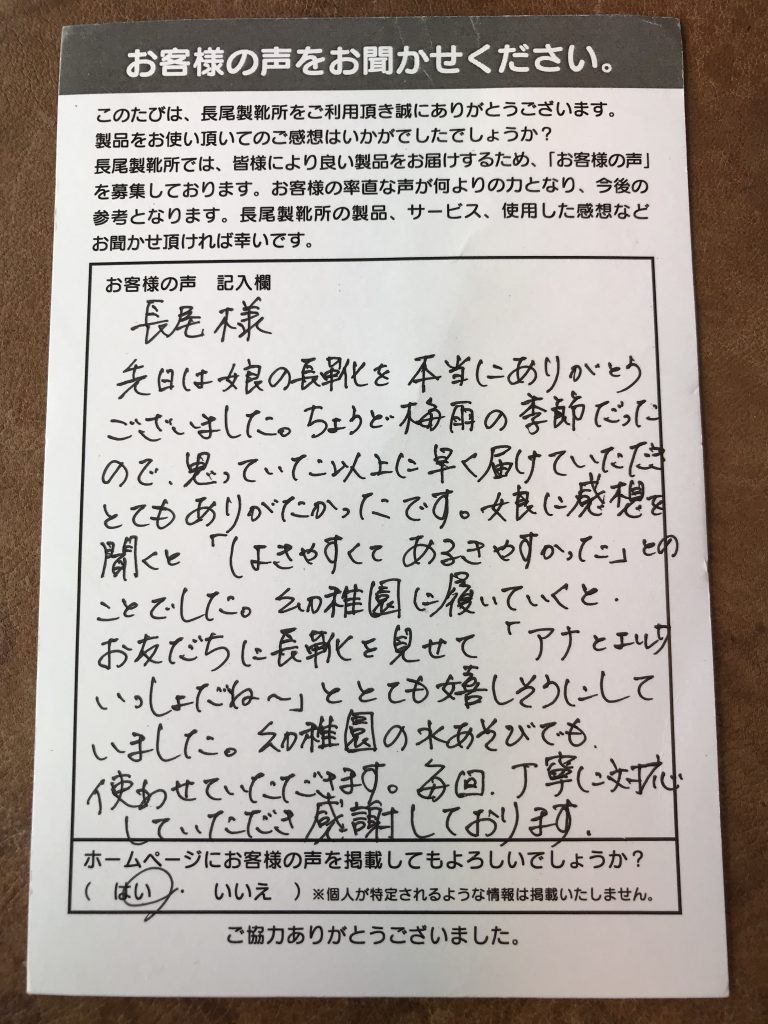 お客様の声をお聞かせください。
このたびは、長尾製靴所をご利用頂き誠にありがとうございます。
製品をお使い頂いてのご感想はいかがでしたでしょうか?
長尾製靴所では、皆様により良い製品をお届けするため、「お客様の声」
を募集しております。お客様の率直な声が何よりの力となり、今後の
参考となります。長尾製靴所の製品、サービス、使用した感想など
お聞かせ頂ければ幸いです。
お客様の声 記入欄
長尾様
先日は娘の長靴を 本当にありがとう
ございました。ちょうど梅雨の季節だった
ので、思っていた以上に早く届けていただき
とてもありがたかったです。娘に感想を
聞くと「はきやすくて あるきやすかった」との
ことでした。幼稚園に履いていくと、
お友だちに長靴を見せて「アナとエルサ
いっしょだね〜」ととても嬉しそうにして
いました。幼稚園の水あそびでも、
使わせていただきます。毎回、丁寧に対応
していただき感謝しております。
ホームページにお客様の声を掲載してもよろしいでしょうか?
( はい ・ いいえ ) ※個人が特定されるような情報は掲載いたしません。
ご協力ありがとうございました。